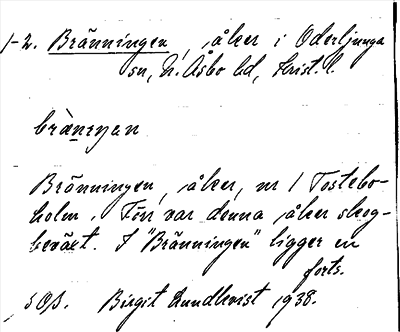 1-2. Bränningen, åker i Oderljunga
sn, N. Åsbo hd, Krist. l.
brä̀nɪŋan
Bränningen, åker, nr 1 Tostebo-
holm. Förr var denna åker skog-
beväxt. I "Bränningen" ligger en
forts.
SOA. Birgit Lundkvist 1938.